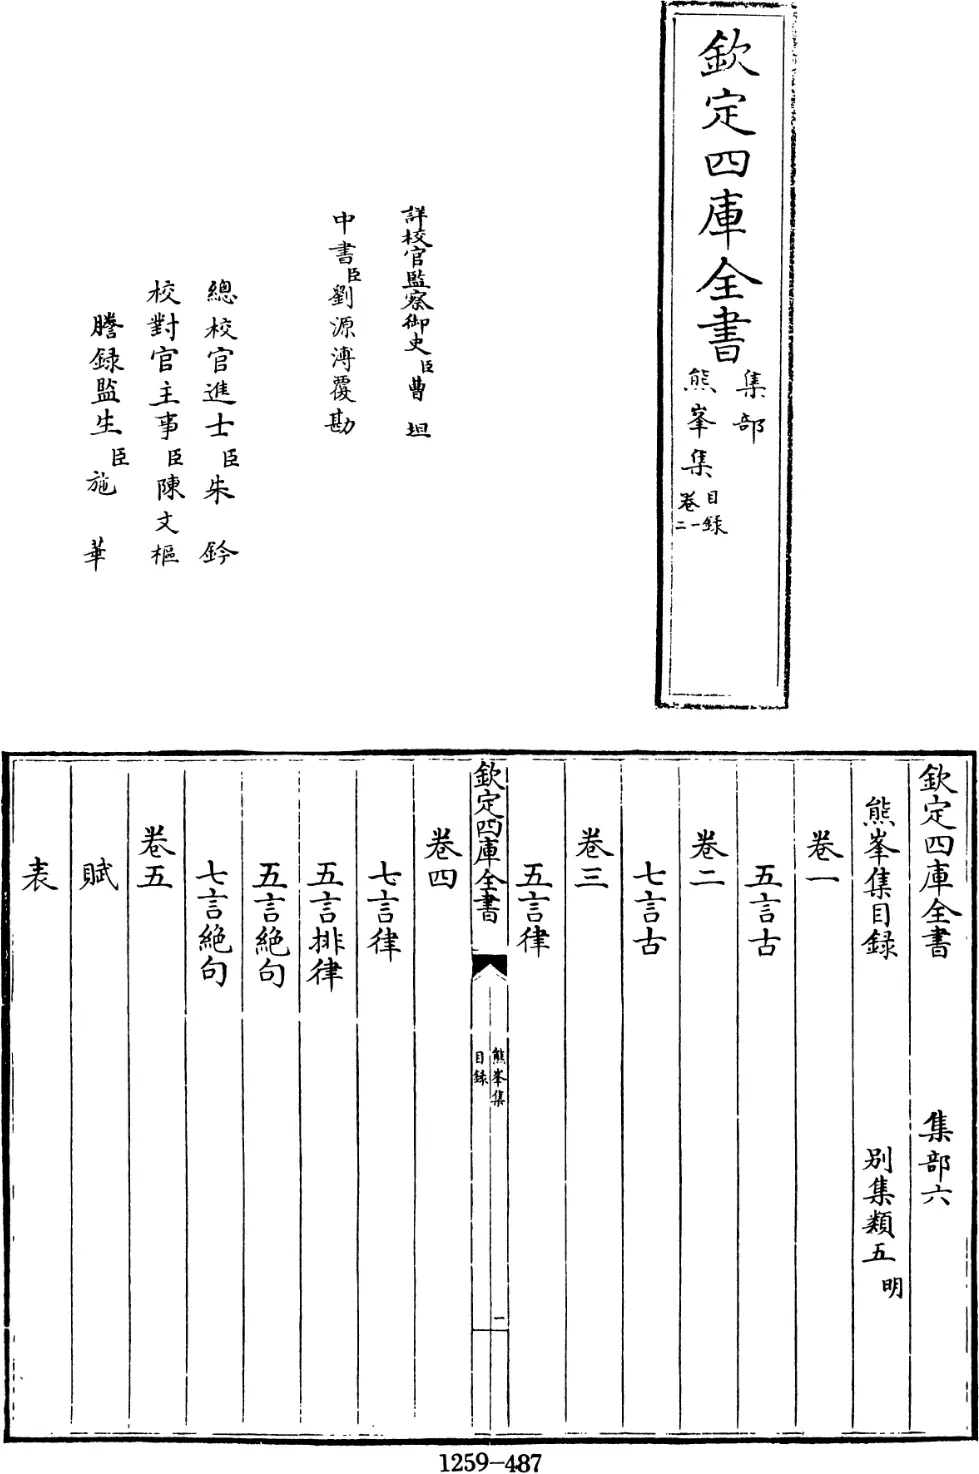 欽定四庫全書
集部
熊峯集
目録
卷一
二
詳校官監察御史臣曹坦
中書臣劉源溥覆勘
總校官進士臣朱鈐
校對官主事臣陳文樞
謄録監生臣施華
欽定四庫全書 集部六
熊峯集目録 别集類五 明
卷一
五言古
卷二
七言古
卷三
五言律
欽定四庫全書
熊峯集
目録
一
卷四
七言律
五言排律
五言絶句
七言絶句
卷五
賦
表
1259-487